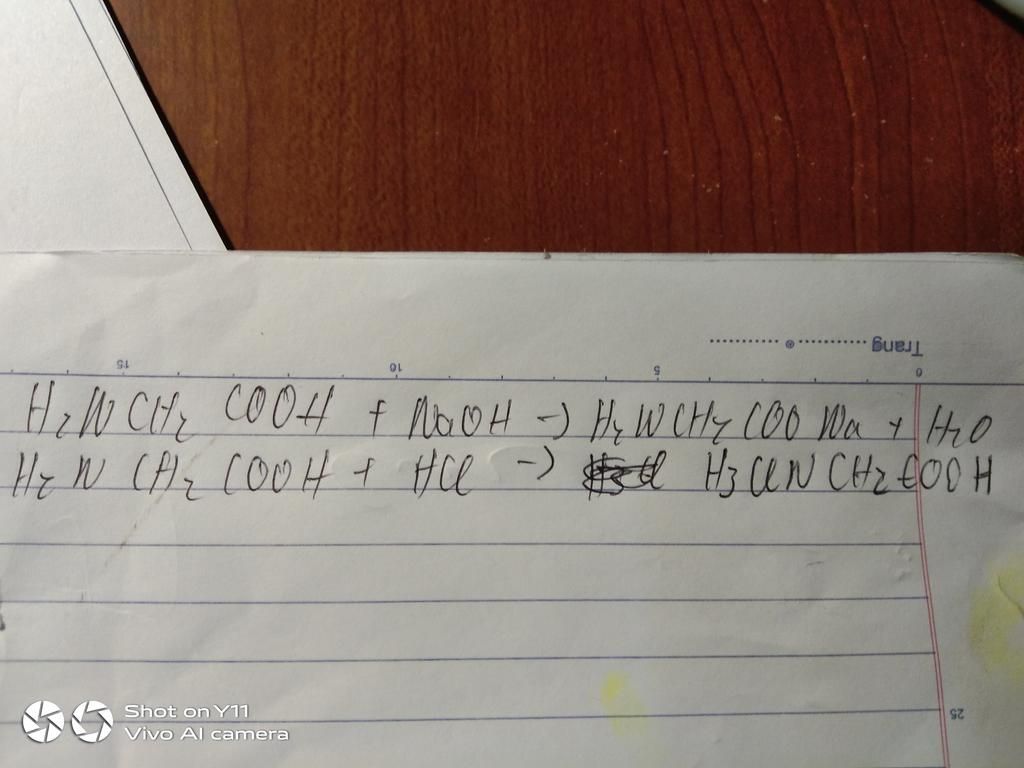 Trang
15 10 5 0
H₂NCH₂ COOH + NaOH → H₂NCH₂COONa + H₂O
H₂N CH₂ COOH + HCl → H₃ClNCH₂COOH
25
Shot on Y11
Vivo AI camera